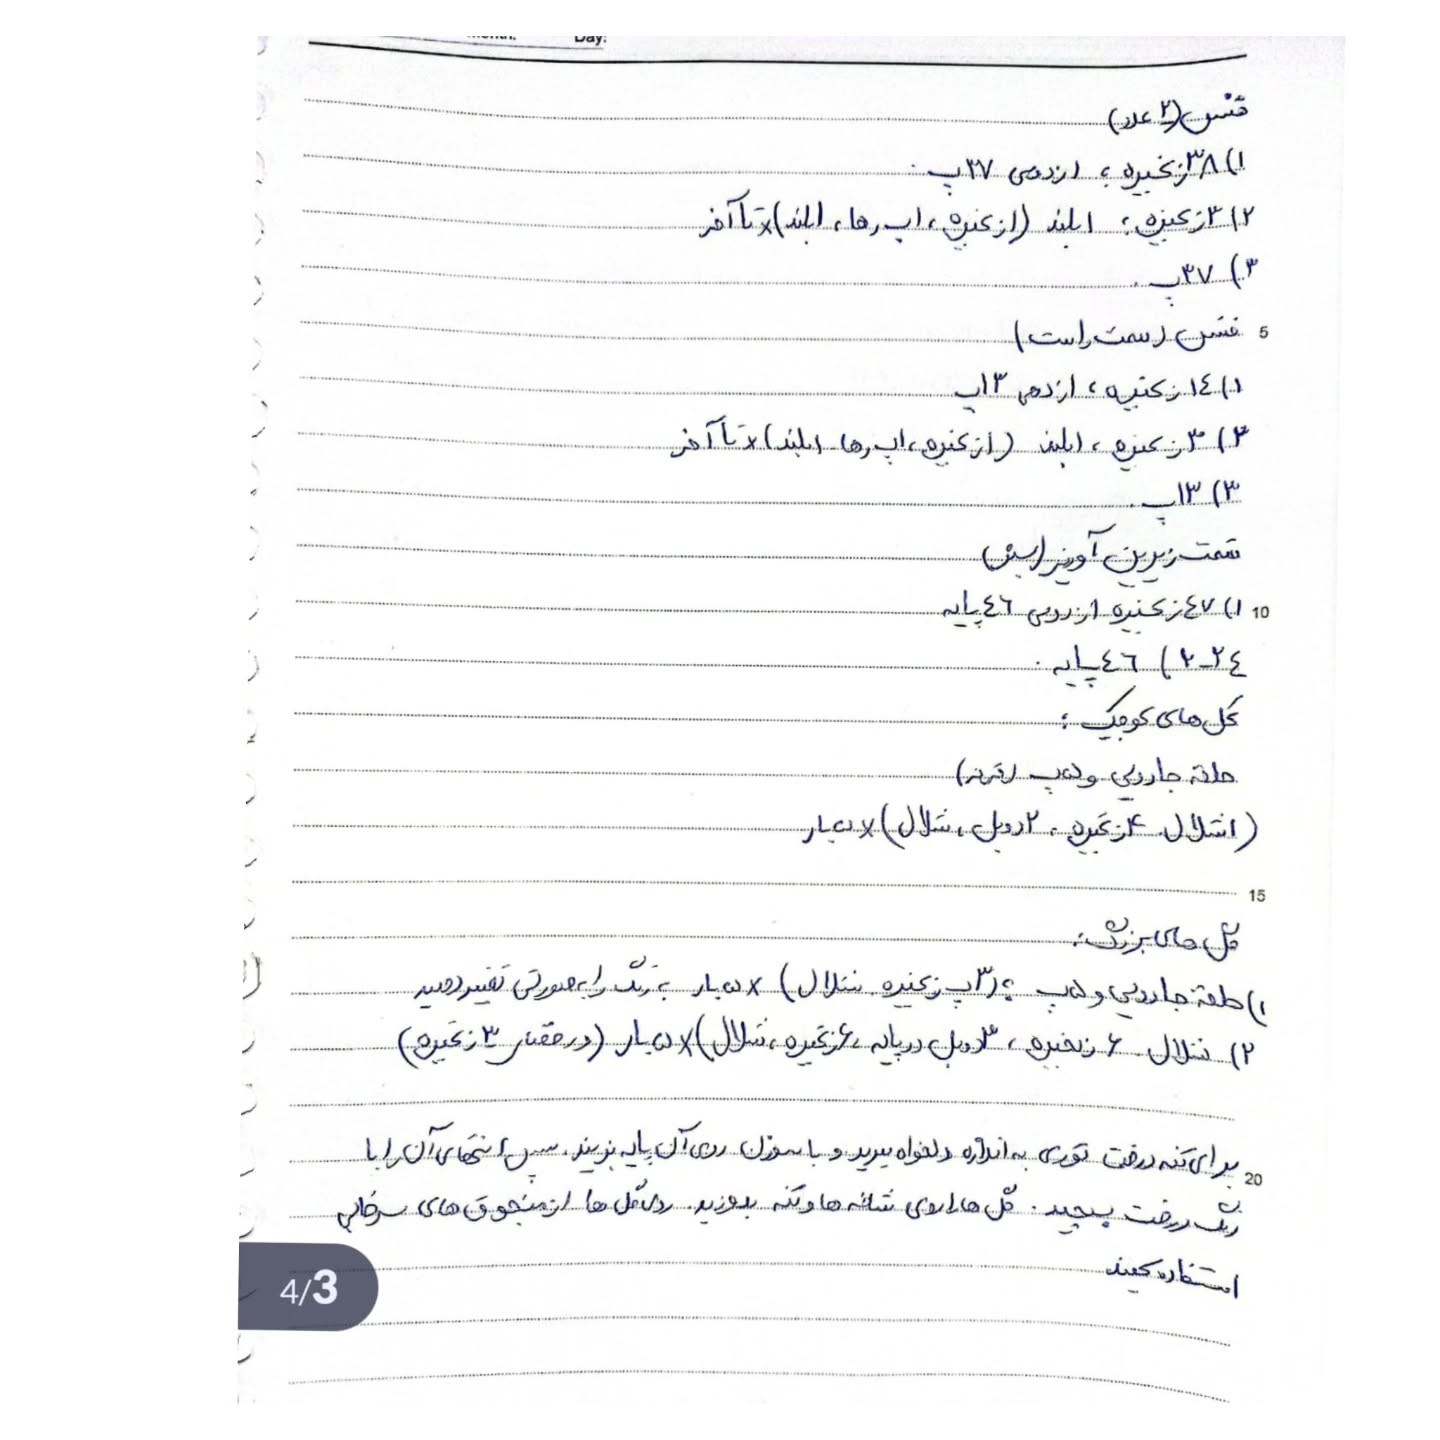 Day:
قفس (۲ عدد)
۱) ۳۸ زنجیره ، از دومی ۳۷ پ
۲) ۳ زنجیره ، ۱ بلند (۱ زنجیره ، ۱ پ رها ، ۱ بلند) × تا آخر
۳) ۳۷ پ
قفس (سمت راست)
5
۱) ۱٤ زنجیره ، از دومی ۱۳ پ
۲) ۳ زنجیره ، ۱ بلند (۱ زنجیره ، ۱ پ رها ، ۱ بلند) × تا آخر
۳) ۱۳ پ
قسمت زیرین آویز (سبز)
۱) ٤۷ زنجیره از دومی ٤٦ پایه
10
۲-۲٤) ٤٦ پایه
گل های کوچک :
حلقه جادویی و ۵ پ (قرمز)
(۱ شلال ، ۴ زنجیره ، ۲ دوبل ، شلال) × ۵ بار
15
گل های بزرگ :
۱) حلقه جادویی و ۵ پ ؛ (۳ پ زنجیره شلال) × ۵ بار ؛ رنگ را به صورتی تغییر دهید
۲) شلال ۶ زنجیره ، ۳ دوبل در پایه ، ۶ زنجیره ، شلال) × ۵ بار (در فضای ۳ زنجیره)
برای تنه درخت توری به اندازه دلخواه ببرید و با سوزن روی آن پایه بزنید. سپس انتهای آن را با
20
رنگ درخت بپیچید . گل ها را روی شاخه ها و تنه بدوزید. روی گل ها از منجوق های سرخابی
استفاده کنید
4/3